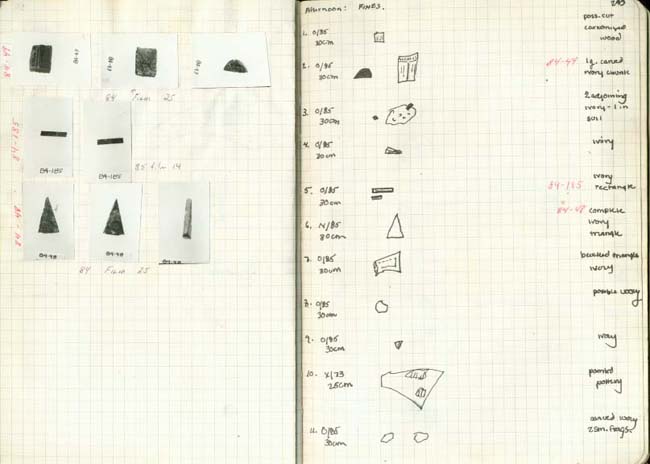 84-49
84-49
84-49
84 Film 25
84-185
84-185
84-185
85 Film 14
84-48
84-48
84-48
84 Film 25
Afternoon: FINDS.
1. O/85
30cm
poss. cut
carbonized
wood
2. O/85
30cm
84-49
lg. carved
ivory chunk
3. O/85
30cm
2 adjoining
ivory - 1 in
soil
4. O/85
30cm
ivory
5. O/85
30cm
84-185
ivory
rectangle
6. N/85
30cm
84-48
complete
ivory
triangle
7. O/85
30cm
ivory
8. O/85
30cm
possible ivory
9. O/85
30cm
ivory
10. X/73
25cm
painted
pottery
11. O/85
30cm
carved ivory
2 sm. frags.